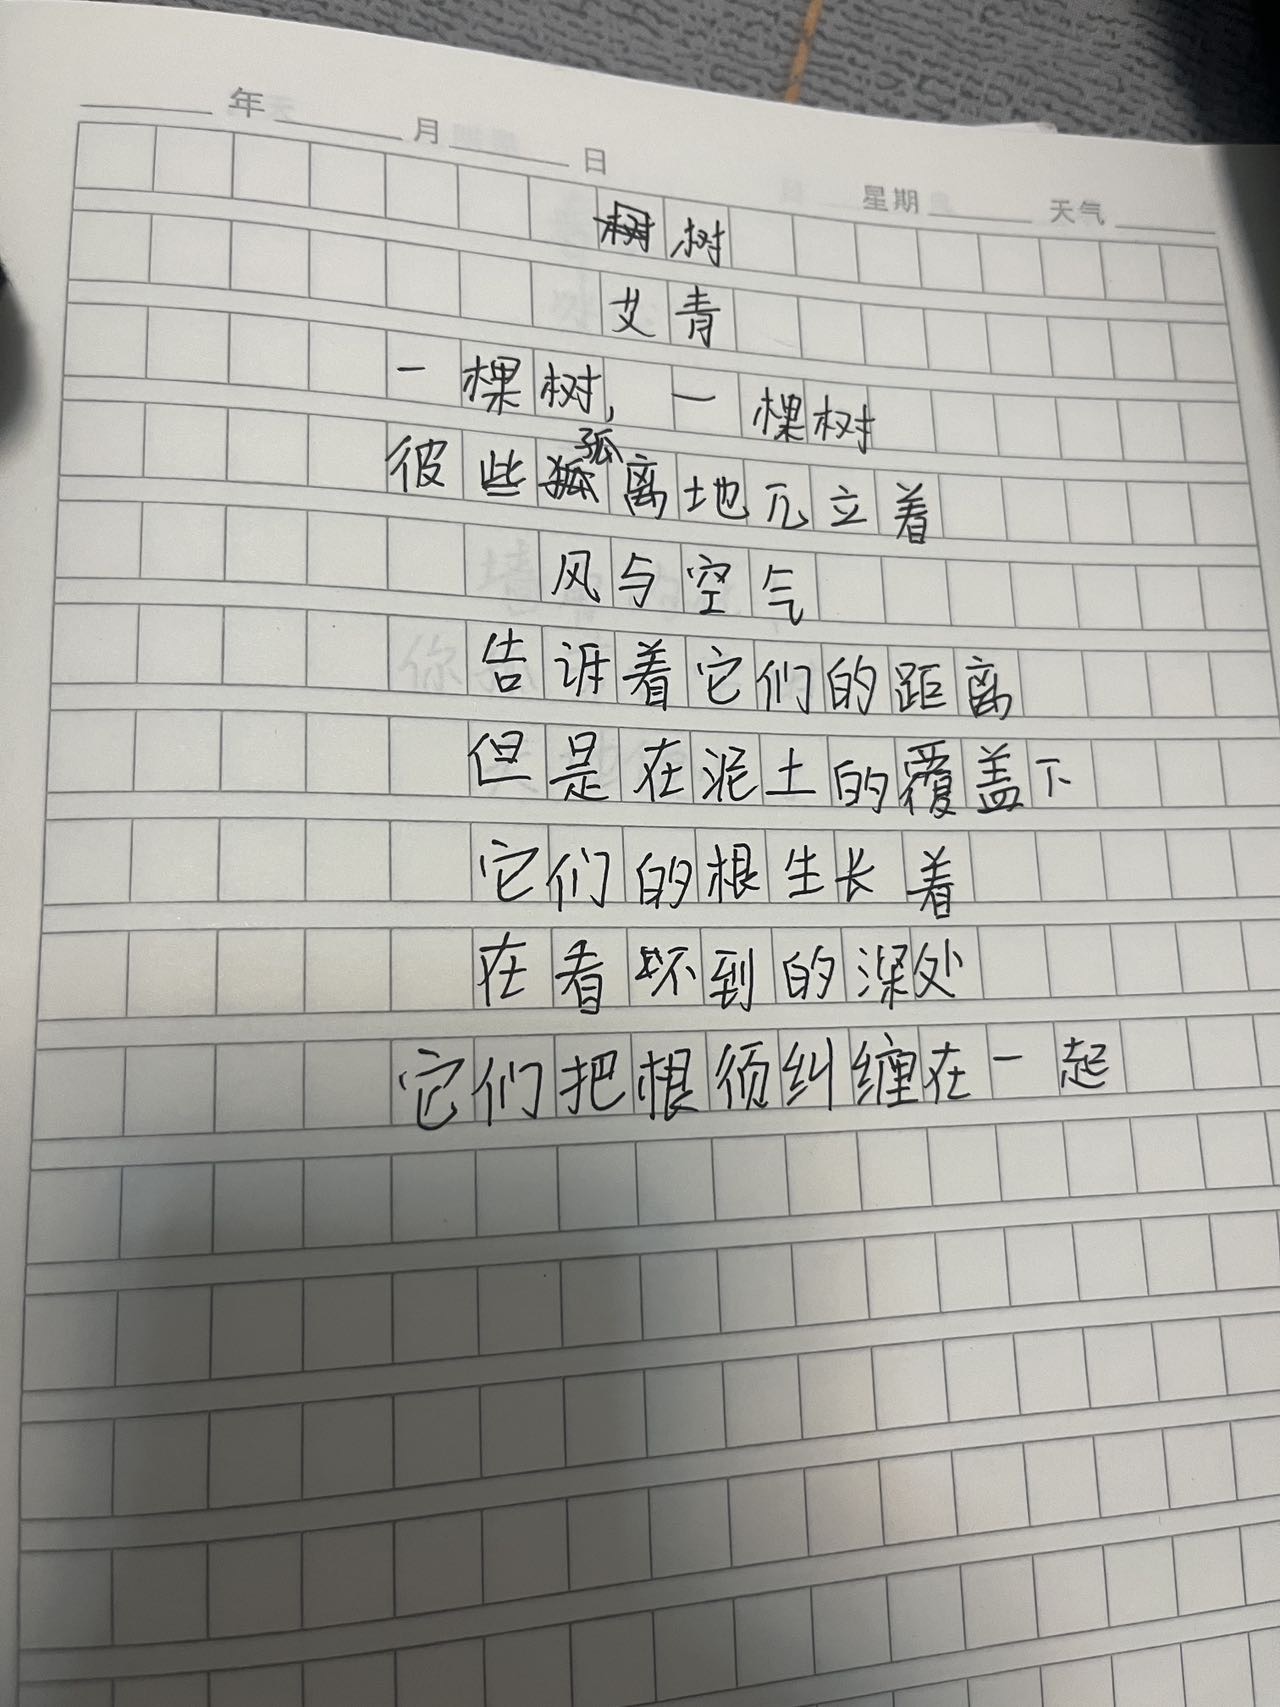 年 月 日 星期 天气
树
艾青
一棵树，一棵树
彼些孤离地兀立着
风与空气
告诉着它们的距离
但是在泥土的覆盖下
它们的根生长着
在看不到的深处
它们把根须纠缠在一起